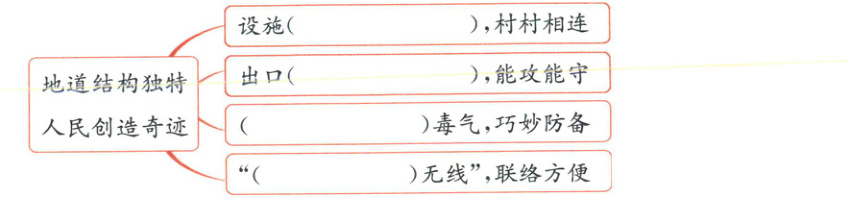 设施(　　　　　　　),村村相连
地道结构独特
出口(　　　　　　　),能攻能守
人民创造奇迹
(　　　　　　　)毒气,巧妙防备
“(　　　　　　　)无线”,联络方便